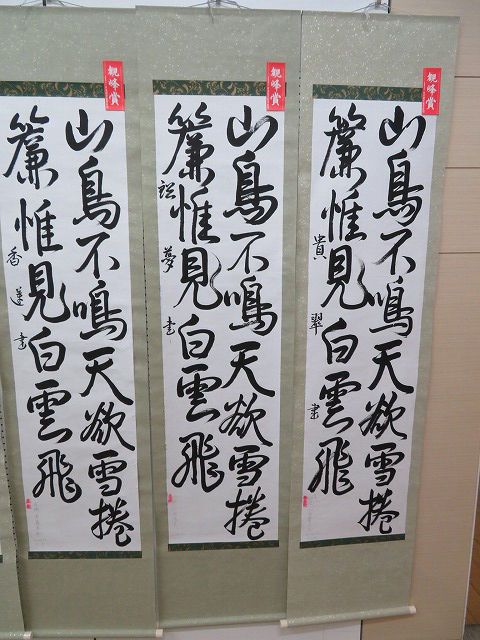 観峰賞
山鳥不鳴天欲雪捲
簾惟見白雲飛
貴翠書
観峰賞
山鳥不鳴天欲雪捲
簾惟見白雲飛
夢書
観峰賞
山鳥不鳴天欲雪捲
簾惟見白雲飛
香蓮書